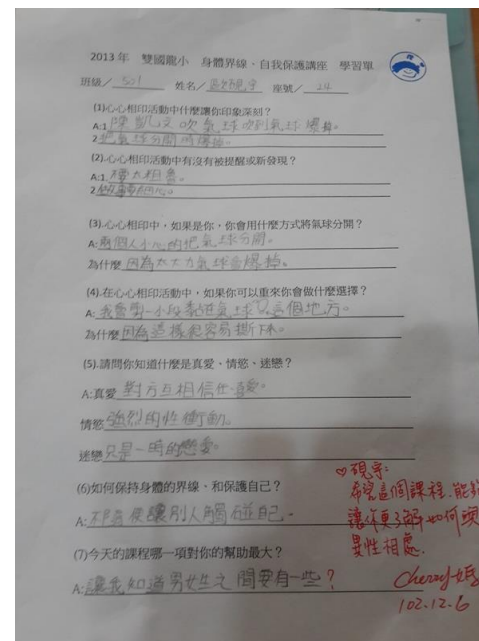 2013 年 雙國龍小 身體界線、自我保護講座 學習單
班級/ 501 姓名/ 硯宇 座號/ 24
(1)心心相印活動中什麼讓你印象深刻?
A:1 陳凱文吹氣球吹到氣球爆掉。
2 把氣球分開時爆掉。
(2).心心相印活動中有沒有被提醒或新發現?
A:1.不要太粗魯。
2.做事要細心。
(3).心心相印中,如果是你,你會用什麼方式將氣球分開?
A:兩個人小心的把氣球分開。
為什麼因為太大力氣球會爆掉。
(4).在心心相印活動中,如果你可以重來你會做什麼選擇?
A:我會剪一小段黏在氣球 這個地方。
為什麼因為這樣很容易撕下來。
(5).請問你知道什麼是真愛、情慾、迷戀?
A:真愛 對方互相信任、喜愛。
情慾 強烈的性衝動。
迷戀 只是一時的戀愛。
(6)如何保持身體的界線、和保護自己?
A:不隨便讓別人觸碰自己。
(7)今天的課程哪一項對你的幫助最大?
A:讓我知道男女生之間要有一些?
♡硯宇:
希望這個課程,能夠
讓你更了解如何與
異性相處.
Cherry媽
102.12.6